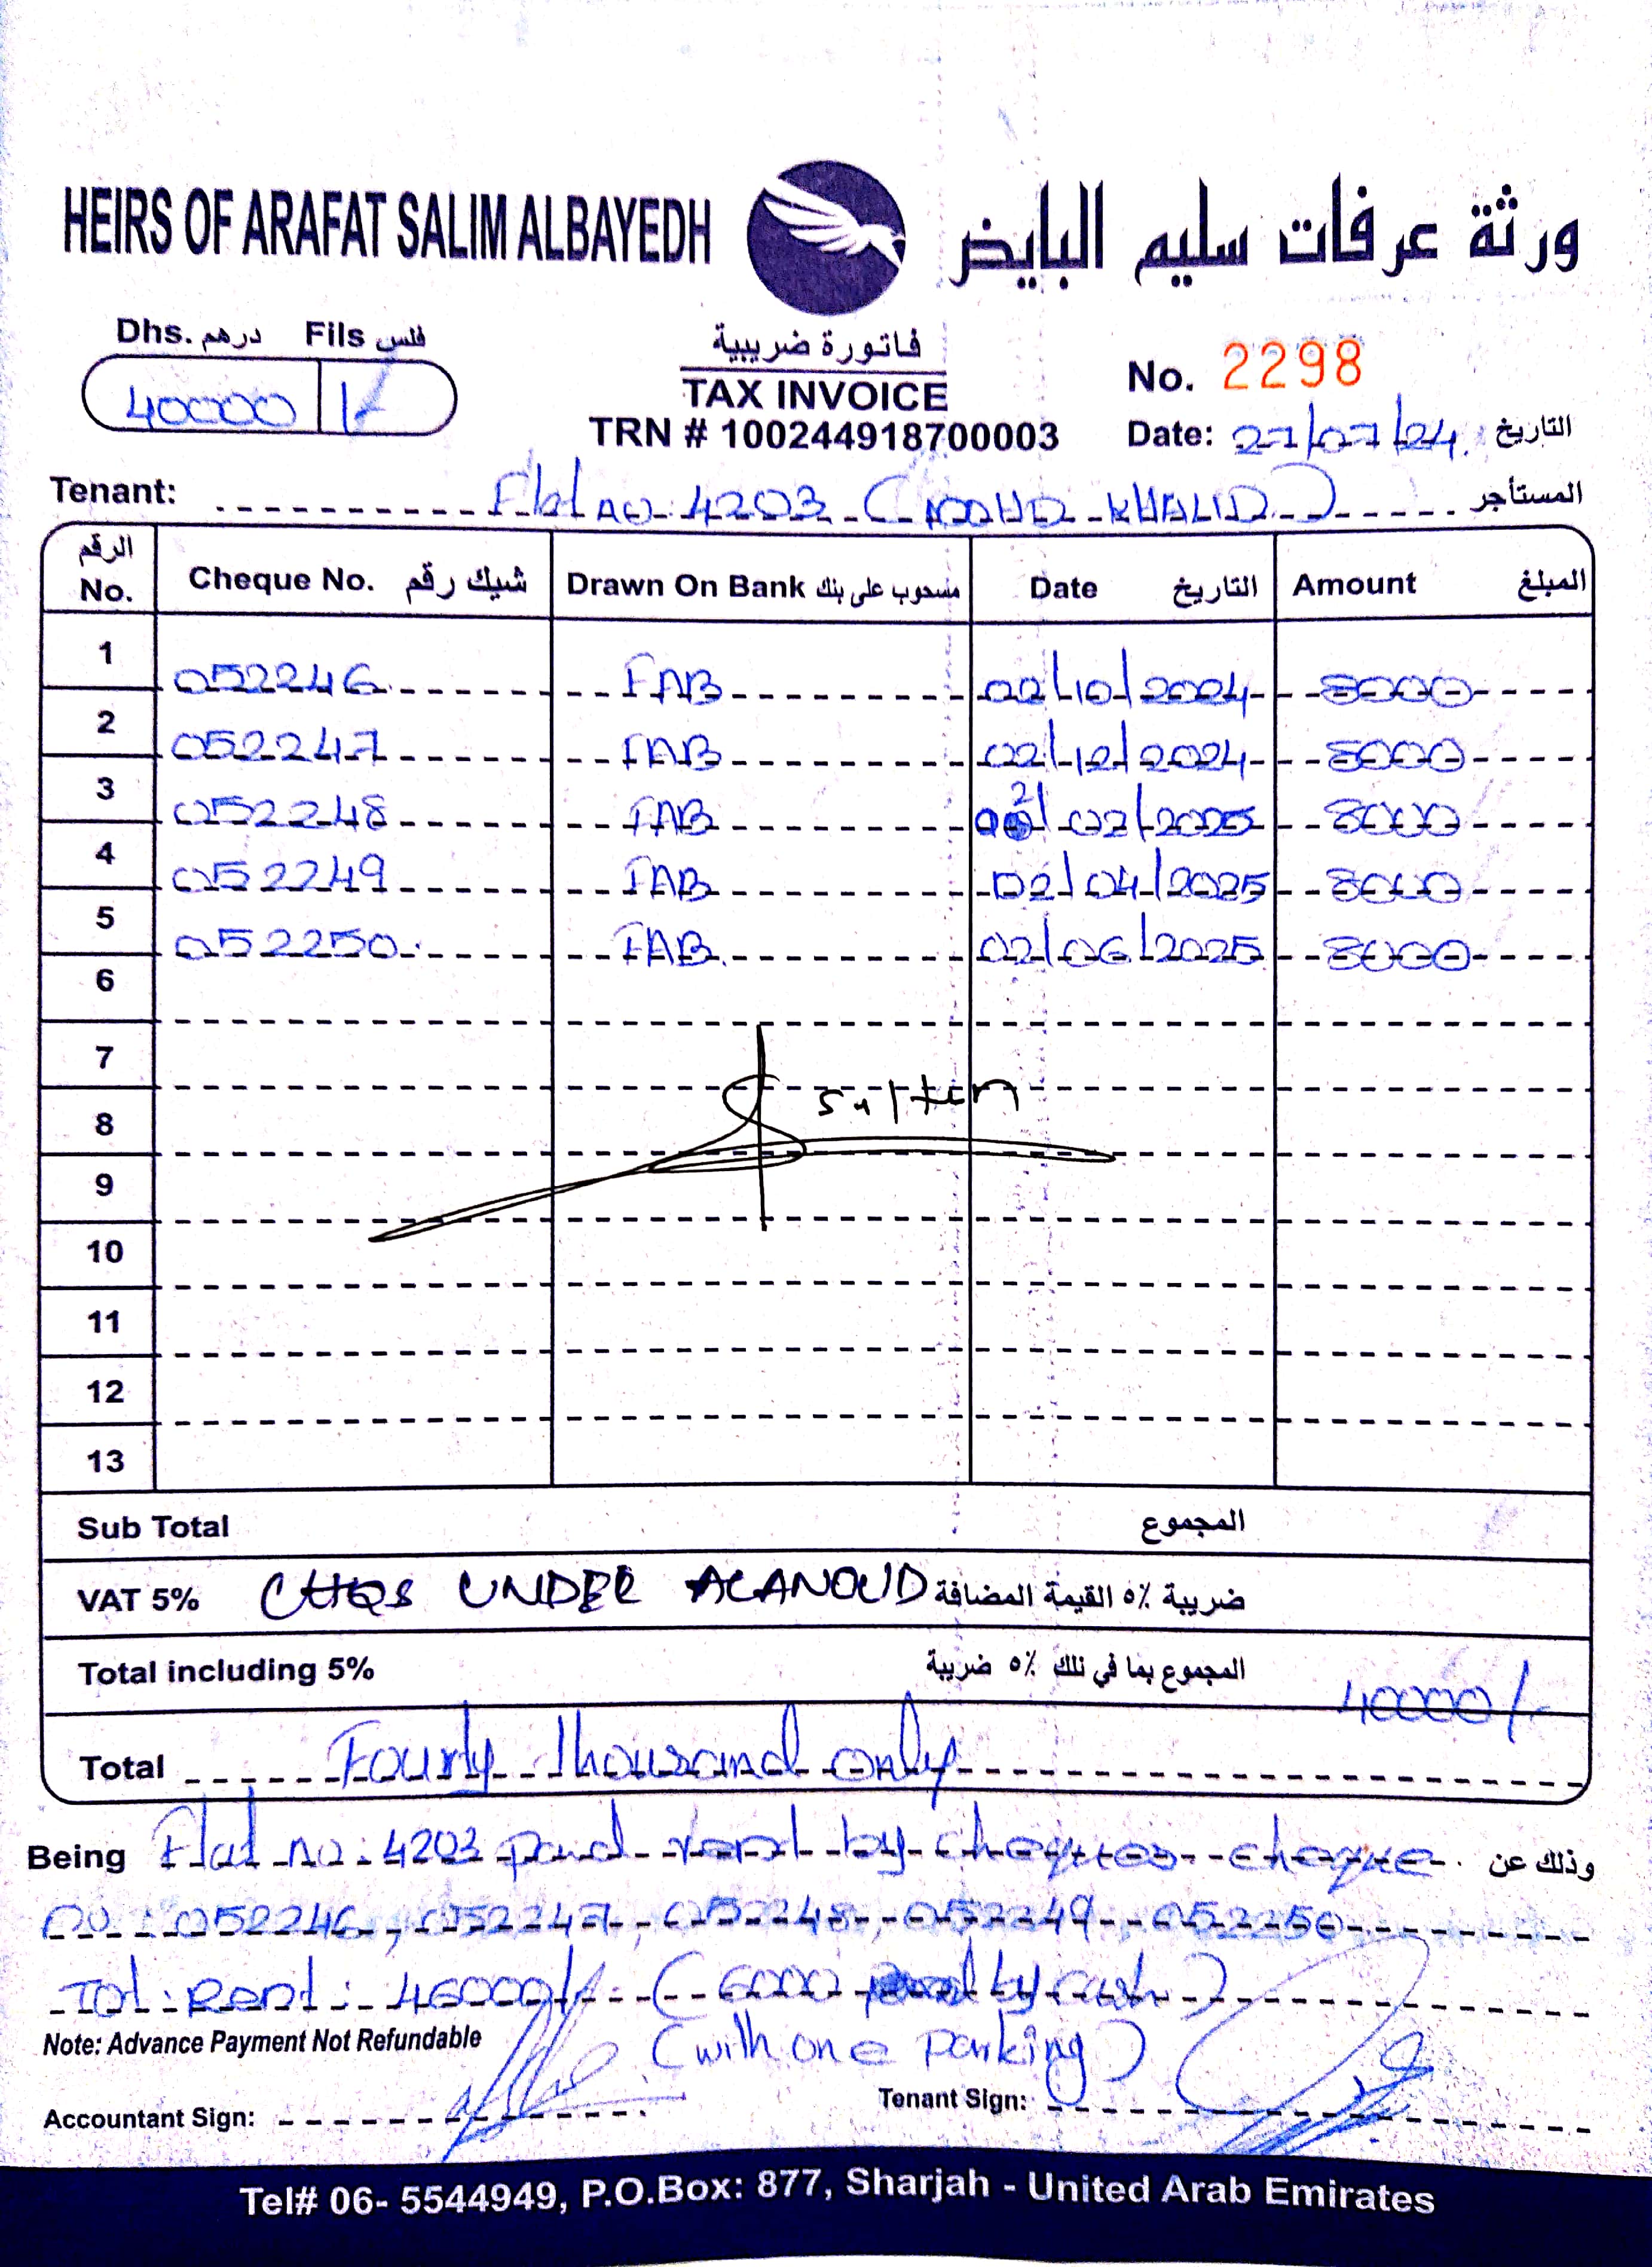 HEIRS OF ARAFAT SALIM ALBAYEDH ورثة عرفات سليم البايض
Dhs. درهم Fils فلس
40000 /-
فاتورة ضريبية
TAX INVOICE
TRN # 100244918700003
No. 2298
Date: 27/07/24. التاريخ
Tenant: Flat no: 4203 (MOHD KHALID) المستأجر
الرقم No. Cheque No. شيك رقم Drawn On Bank مسحوب على بنك Date التاريخ Amount المبلغ
1 052246 FAB 02/10/2024 8000
2 052247 FAB 02/12/2024 8000
3 052248 FAB 02/02/2025 8000
4 052249 FAB 02/04/2025 8000
5 052250 FAB 02/06/2025 8000
6
7
8 Sultan
9
10
11
12
13
Sub Total المجموع
VAT 5% CHQS UNDER ALANOUD ضريبة ٥٪ القيمة المضافة
Total including 5% المجموع بما في ذلك ٥٪ ضريبة
40000/-
Total Fourty Thousand only
Being Flat no: 4203 paid rent by cheques cheque وذلك عن
no: 052246, 052247, 052248, 052249 052250
Tot: Rent: 46000/- (6000 by cash)
Note: Advance Payment Not Refundable
(with one parking)
Accountant Sign: Tenant Sign:
Tel# 06- 5544949, P.O.Box: 877, Sharjah - United Arab Emirates